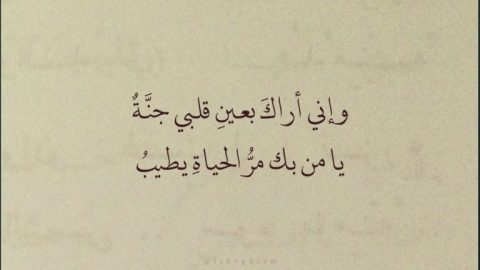 وإني أراكَ بعينِ قلبي جنَّةٌ
يا من بك مرُّ الحياةِ يطيبُ